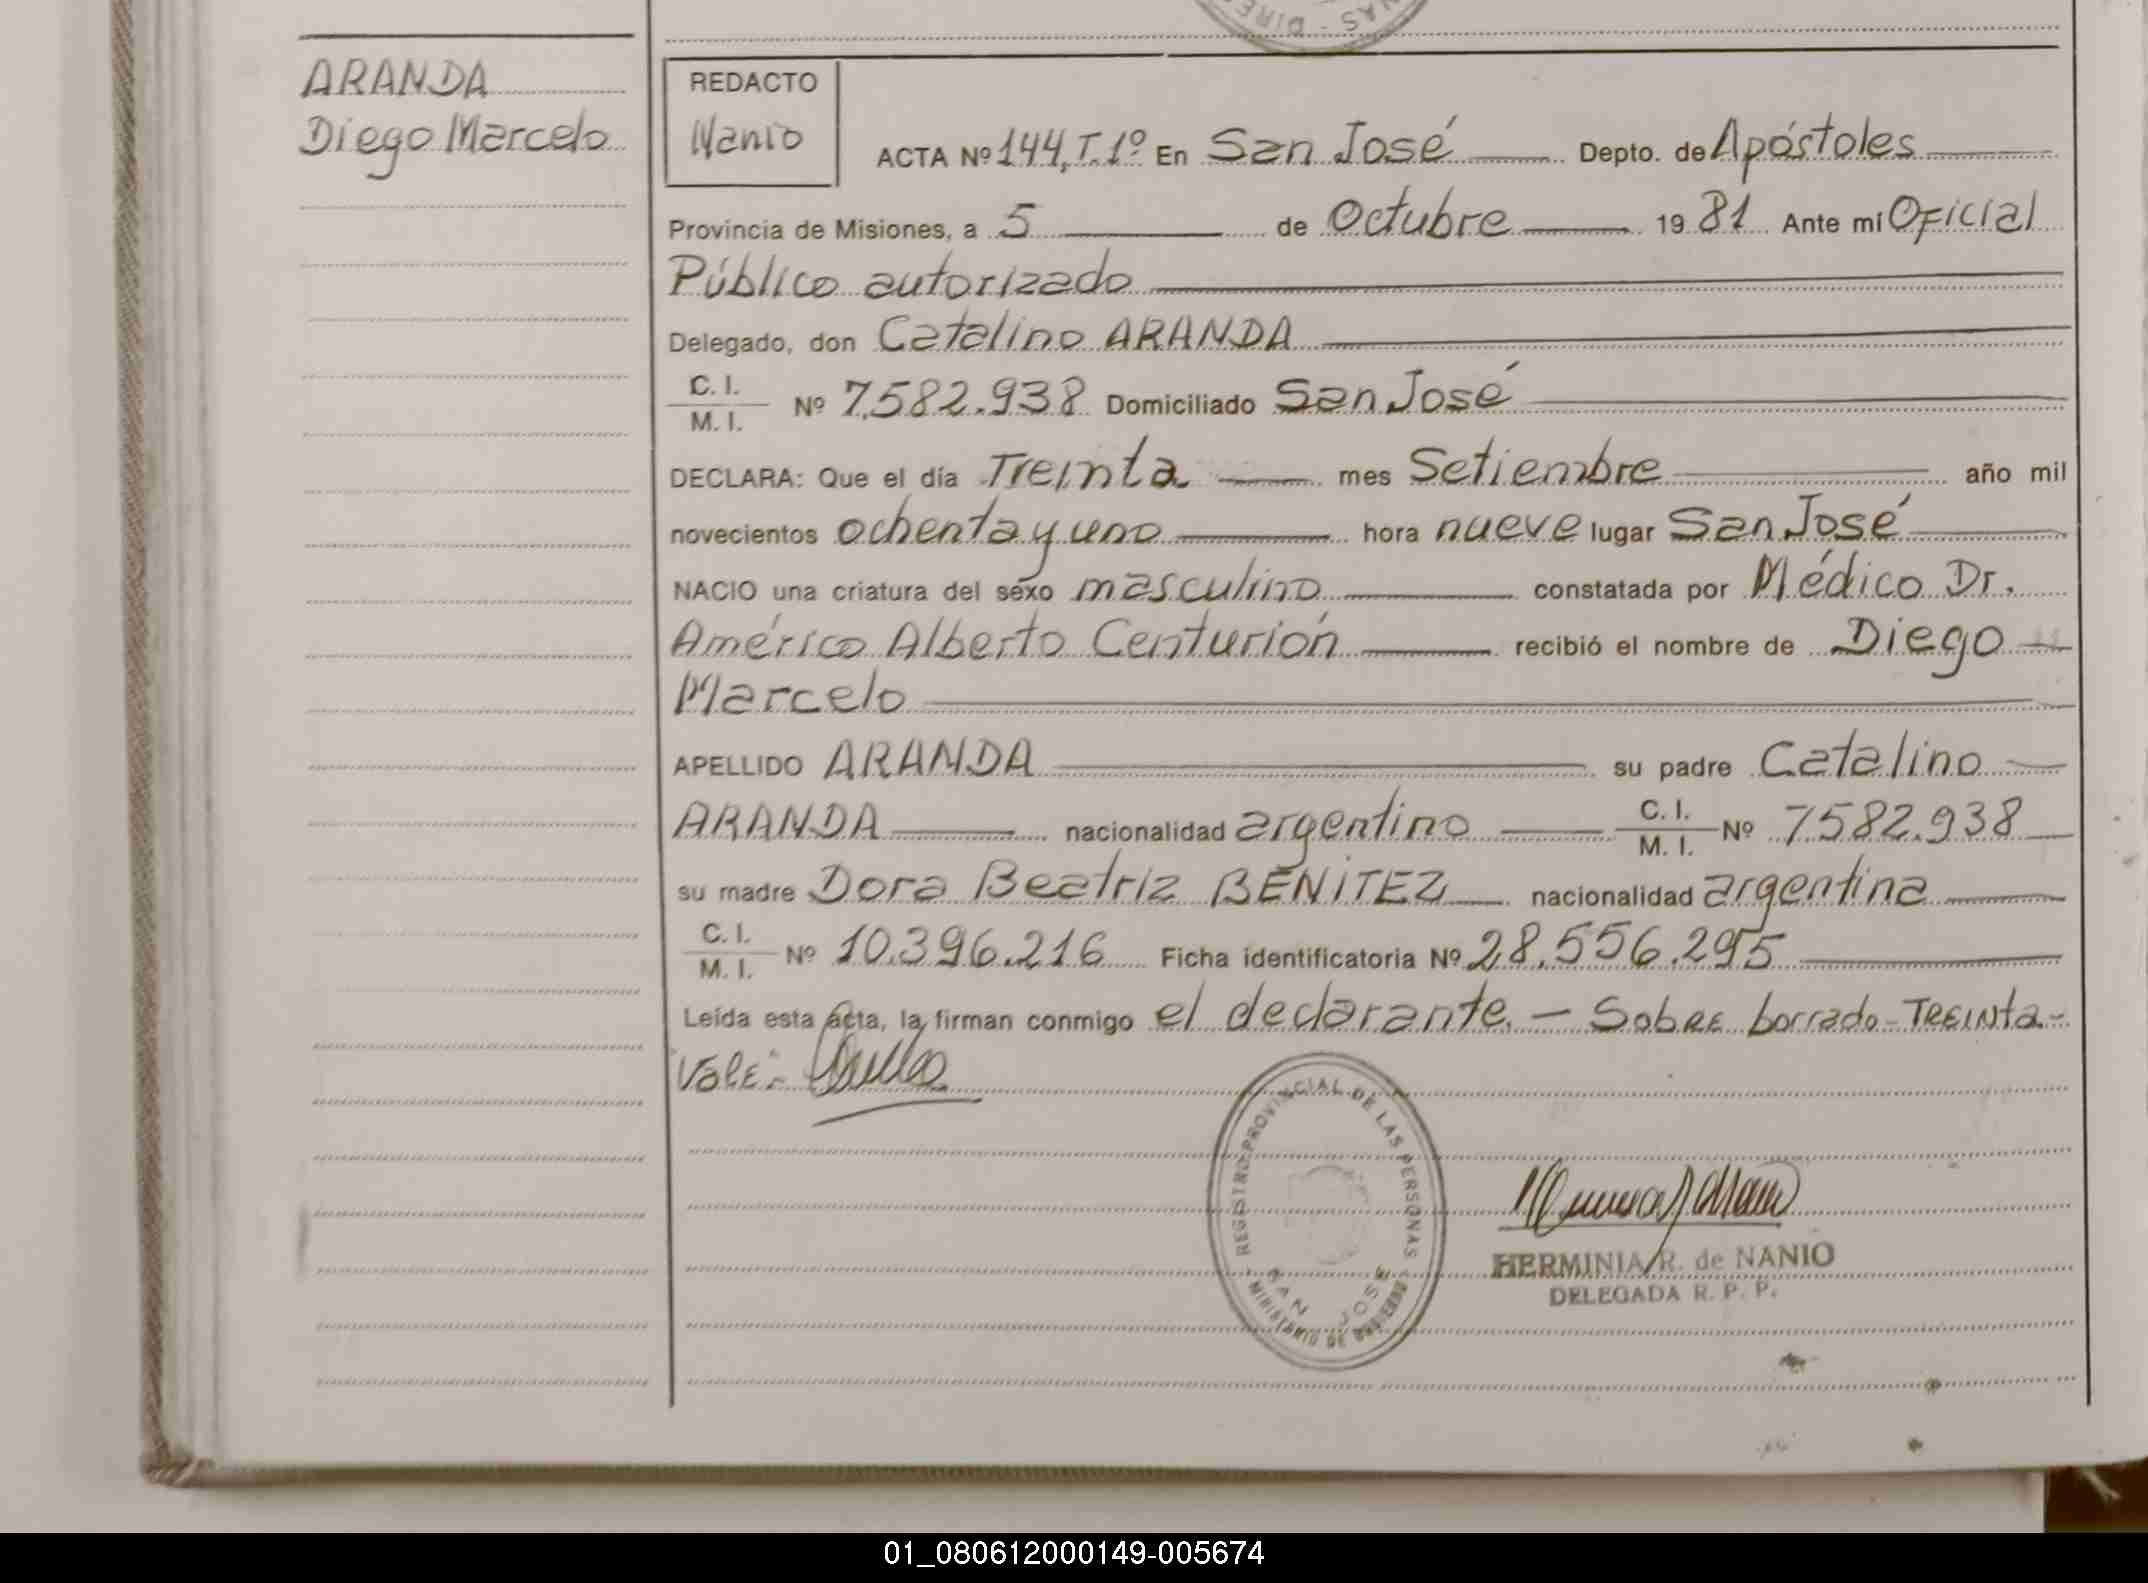 NAS - DIRE
ARANDA
Diego Marcelo
REDACTO
Nanio
ACTA Nº 144, T. 1º En San José Depto. de Apóstoles
Provincia de Misiones, a 5 de Octubre 1981 Ante mí Oficial
Público autorizado
Delegado, don Catalino ARANDA
C. I.
M. I. Nº 7.582.938 Domiciliado San José
DECLARA: Que el día Treinta mes Setiembre año mil
novecientos ochenta y uno hora nueve lugar San José
NACIO una criatura del sexo masculino constatada por Médico Dr.
Américo Alberto Centurión recibió el nombre de Diego
Marcelo
APELLIDO ARANDA su padre Catalino
ARANDA nacionalidad argentino C. I. M. I. Nº 7582.938
su madre Dora Beatriz BENITEZ nacionalidad argentina
C. I.
M. I. Nº 10.396.216 Ficha identificatoria Nº 28.556.295
Leída esta acta, la firman conmigo el declarante. - Sobre borrado - Treinta -
Vale:-
REGISTRO PROVINCIAL DE LAS PERSONAS
SAN JOSE
MINISTERIO DE GOBIERNO
HERMINIA R. de NANIO
DELEGADA R. P. P.
01_080612000149-005674